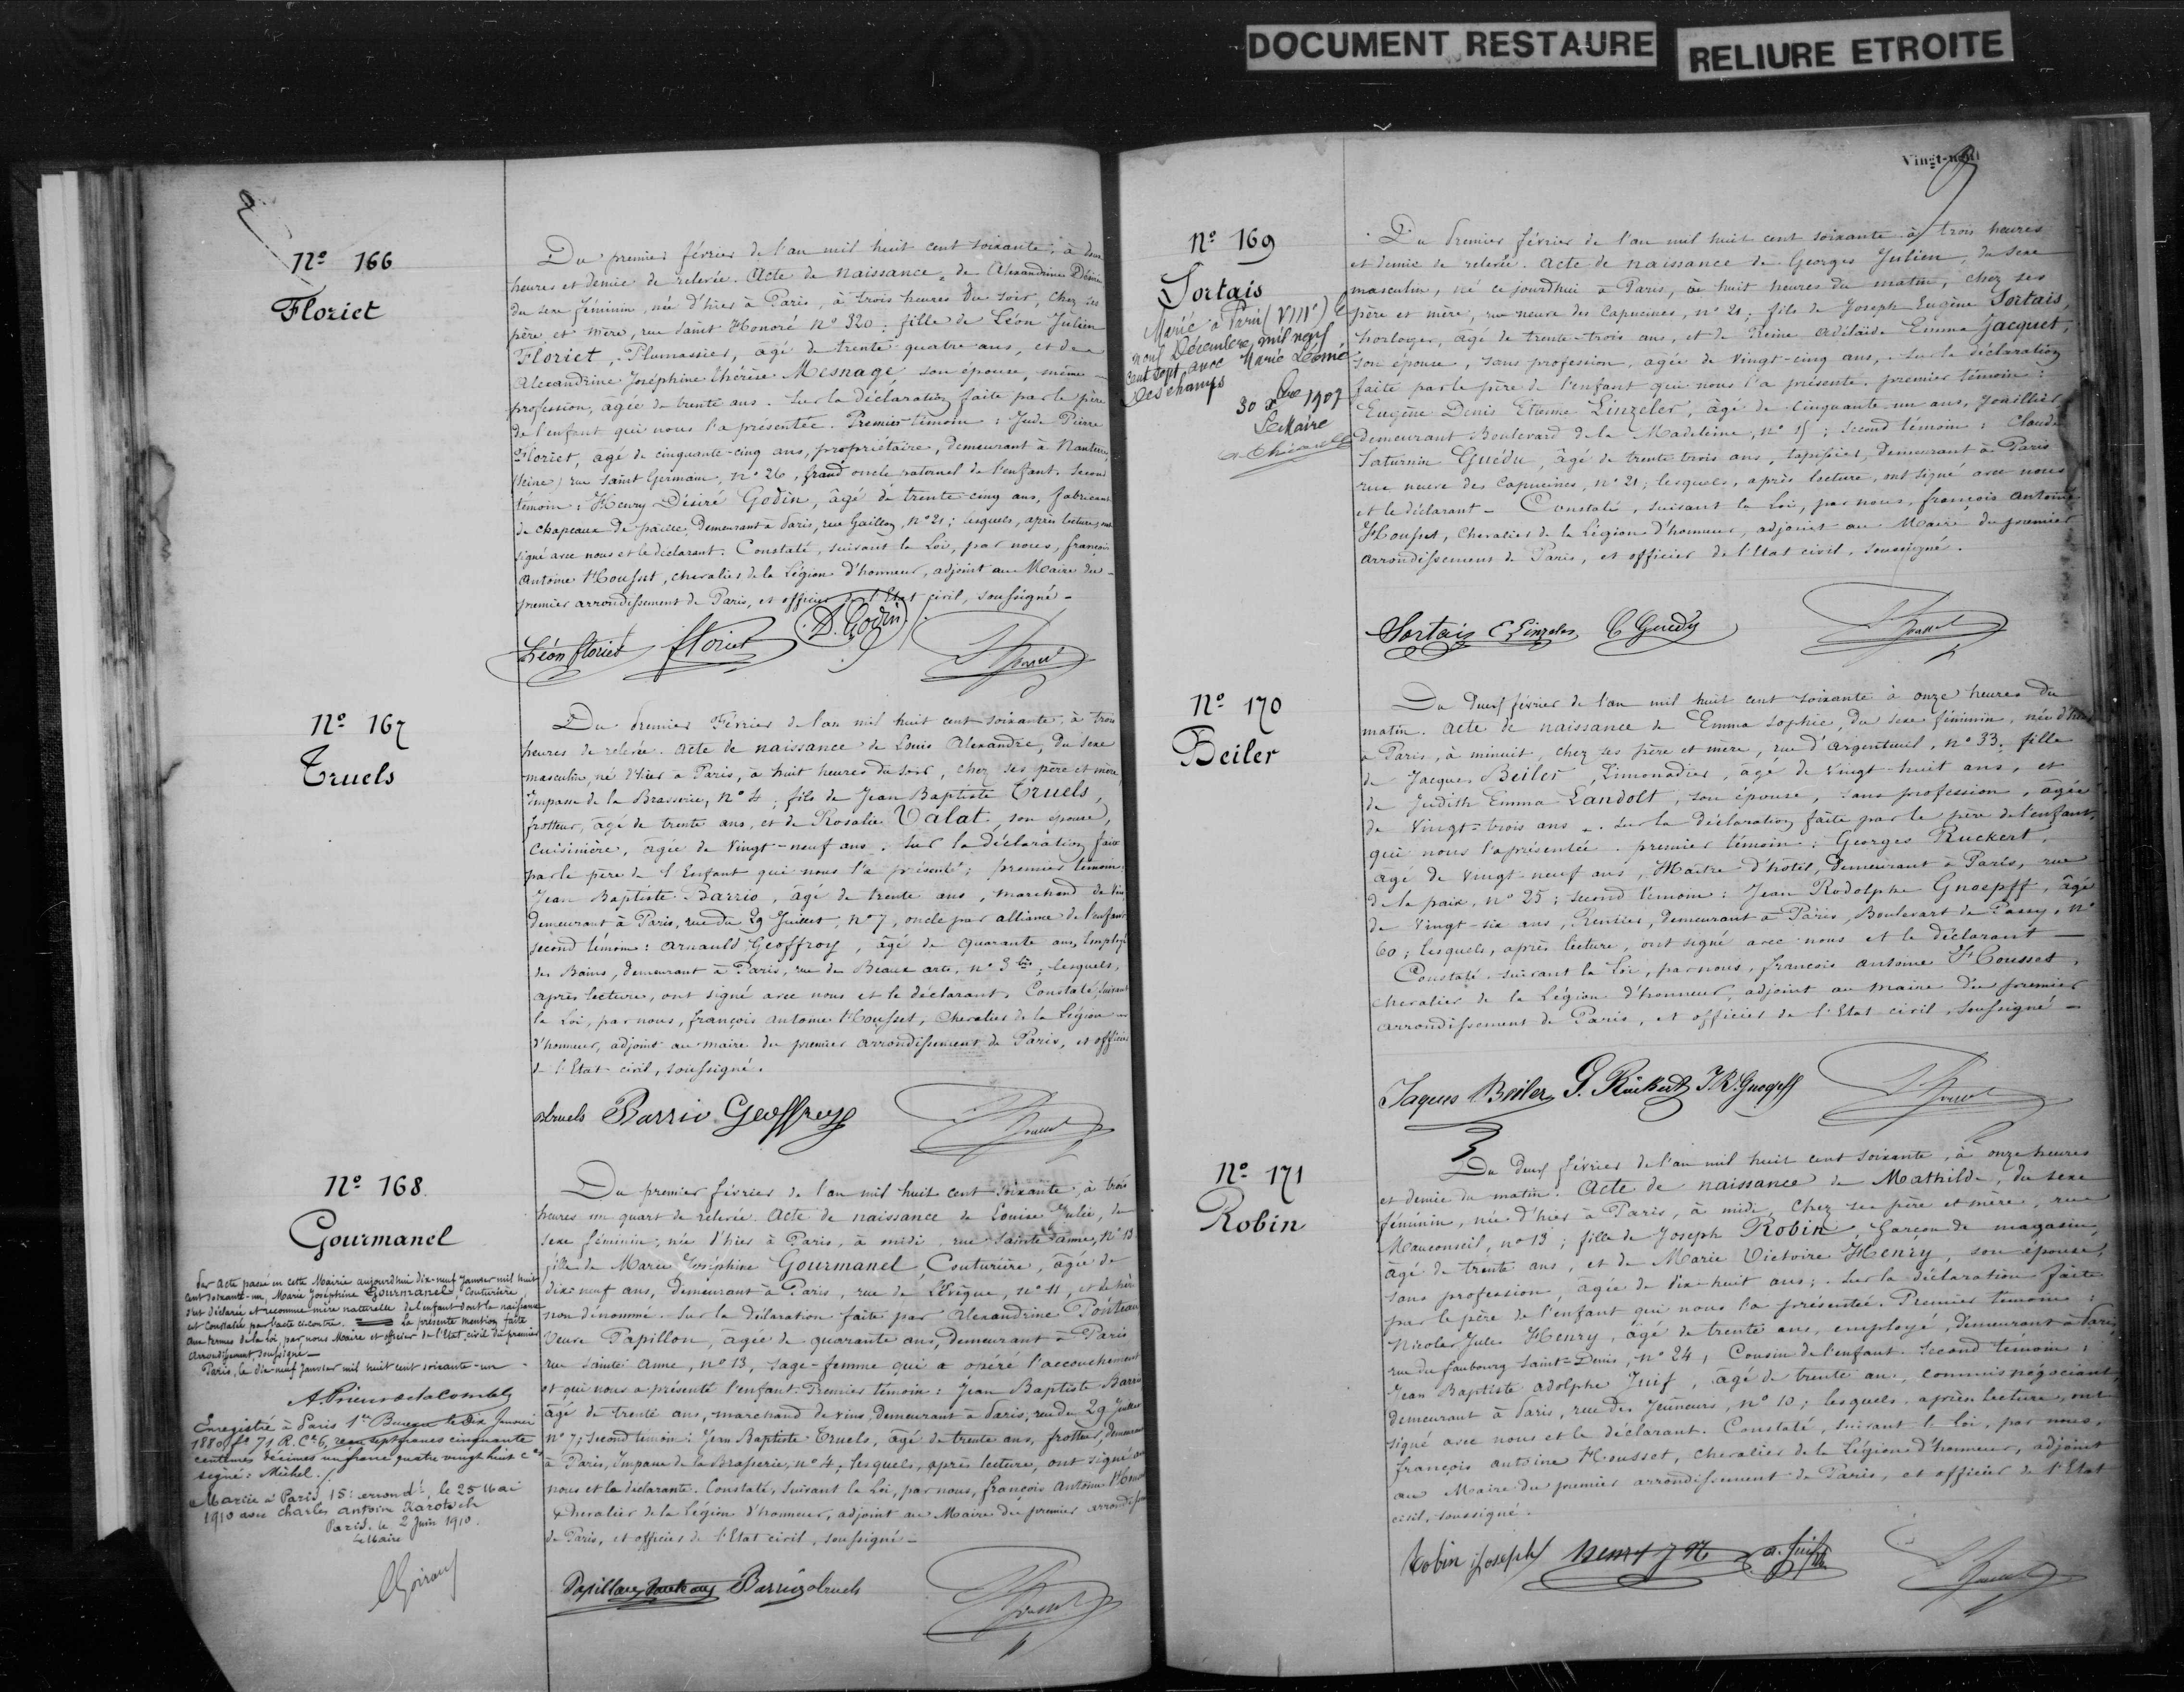 DOCUMENT RESTAURE
RELIURE ETROITE
Nº 166
Floriet
Du premier février de l'an mil huit cent soixante, à deux
heures et demie de relevée. Acte de naissance de Alexandrine Désirée
du sexe féminin, née d'hier à Paris, à trois heures du soir, chez ses
père et mère, rue Saint Honoré nº 320; fille de Léon Julien
Floriet, Plumassier, âgé de trente quatre ans, et de
Alexandrine Joséphine Thérèse Mesnage son épouse, même
profession, âgée de trente ans. Sur la déclaration faite par le père
de l'enfant qui nous l'a présentée. Premier témoin: Jude Pierre
Floriet, âgé de cinquante-cinq ans, propriétaire, demeurant à Nanterre
(Seine) rue Saint Germain, nº 26, grand oncle paternel de l'enfant. Second
témoin: Henry Désiré Godin, âgé de trente cinq ans, fabricant
de chapeaux de paille, demeurant à Paris, rue Gaillon, nº 21; lesquels, après lecture, ont
signé avec nous et le déclarant. Constaté, suivant la Loi, par nous, françois
Antoine Housset, chevalier de la Légion d'honneur, adjoint au Maire du
premier arrondissement de Paris, et officier de l'Etat civil, soussigné
Léon floriet floriet D. Godin
Nº 167
Truels
Du premier Février de l'an mil huit cent soixante, à trois
heures de relevée. Acte de naissance de Louis Alexandre, du sexe
masculin, né d'hier à Paris, à huit heures du soir, chez ses père et mère,
Impasse de la Brasserie, Nº 4; fils de Jean Baptiste Truels,
frotteur, âgé de trente ans, et de Rosalie Valat son épouse,
cuisinière, agée de vingt-neuf ans. Sur la déclaration faite
par le père de l'Enfant qui nous l'a présenté; premier témoin:
Jean Baptiste Barrio, âgé de trente ans, marchand de Vin,
demeurant à Paris, rue du 29 Juillet, Nº 7, oncle par alliance de l'enfant
second témoin: Arnauld Geoffroy, âgé de quarante ans, Employé
des Bains, demeurant à Paris, rue des Beaux arts, nº 3 bis; lesquels,
après lecture, ont signé avec nous et le déclarant. Constaté, suivant
la Loi, par nous, françois Antoine Housset, Chevalier de la Légion
d'honneur, adjoint au maire du premier arrondissement de Paris, et officier
de l'Etat civil, soussigné.
truels Barrio Geoffroy
Nº 168
Gourmanel
Par Acte passé en cette Mairie aujourd'hui dix-neuf Janvier mil huit
cent soixante-un, Marie Joséphine Gourmanel, Couturière,
s'est déclarée et reconnue mère naturelle de l'enfant dont la naissance
est constatée par l'acte ci-contre. La présente mention faite
aux termes de la loi, par nous Maire et officier de l'Etat civil du premier
Arrondissement, soussigné
Paris, le dix-neuf Janvier mil huit cent soixante-un
Enregistré à Paris 1er Bureau le dix Janvier
71 R. Cse 6, reçu sept francs cinquante
centimes décimes un franc quatre vingt huit ces
signé: Michel.
Mariée à Paris 15: arrondt, le 25 Mai
1910 avec Charles Antoine
Paris, le 2 Juin 1910.
Le Maire
Du premier février de l'an mil huit cent soixante, à trois
heures un quart de relevée. Acte de naissance de Louise Julie, du
sexe féminin, née d'hier à Paris, à midi, rue Sainte Anne, Nº 13
fille de Marie Joséphine Gourmanel, Couturière, âgée de
dix-neuf ans, demeurant à Paris, rue de Lévêque, nº 11, et de père
non dénommé. Sur la déclaration faite par Alexandrine Ponteau
Veuve Papillon, agée de quarante ans, demeurant à Paris
rue Sainte Anne, nº 13, sage-femme qui a opéré l'accouchement
et qui nous a présenté l'enfant. Premier témoin: Jean Baptiste Barrio
âgé de trente ans, marchand de vins, demeurant à Paris, rue du 29 Juillet
nº 7; second témoin: Jean Baptiste Truels, âgé de trente ans, frotteur, demeurant
à Paris, Impasse de la Brasserie, nº 4; lesquels, après lecture, ont signé avec
nous et la déclarante. Constaté, suivant la Loi, par nous, françois Antoine Housset
Chevalier de la Légion d'honneur, adjoint au Maire du premier arrondissement
de Paris, et officier de l'Etat civil, soussigné
Barrio truels
Vingt-neuf
Nº 169
Sortais
Marié à Paris (VIIIe) le
neuf Décembre mil neuf
cent sept avec Marie Léonie
Deschamps
30 Xbre 1907
Le Maire
Du premier février de l'an mil huit cent soixante à trois heures
et demie de relevée. Acte de naissance de Georges Julien, du sexe
masculin, né ce jourd'hui à Paris, à huit heures du matin, chez ses
père et mère, rue neuve des Capucines, nº 21; fils de Joseph Eugène Sortais,
horloger, âgé de trente-trois ans, et de Reine Adélaïde Emma Jacquet,
son épouse, sans profession, agée de vingt-cinq ans, Sur la déclaration
faite par le père de l'enfant qui nous l'a présenté. premier témoin:
Eugène Denis Etienne Linzeler, âgé de cinquante-un ans, Joaillier,
demeurant Boulevard de la Madeleine, nº 15; second témoin: Claude
Saturnin Guédu, âgé de trente trois ans, tapissier, demeurant à Paris
rue neuve des Capucines, nº 21; lesquels, après lecture, ont signé avec nous
et le déclarant. Constaté, suivant la Loi, par nous, françois Antoine
Housset, chevalier de la Légion d'honneur, adjoint au Maire du premier
arrondissement de Paris, et officier de l'Etat civil, soussigné.
Sortais E Linzeler C Guedu
Nº 170
Beiler
Du deux février de l'an mil huit cent soixante à onze heures du
matin. Acte de naissance de Emma Sophie, du sexe féminin, née d'hier
à Paris, à minuit, chez ses père et mère, rue d'argenteuil, nº 33, fille
de Jacques Beiler, Limonadier, âgé de vingt-huit ans, et
de Judith Emma Landolt, son épouse, sans profession, agée
de vingt-trois ans. Sur la déclaration faite par le père de l'enfant,
qui nous l'a présentée. premier témoin: Georges Ruckert,
âgé de vingt-neuf ans, Maître d'hôtel, demeurant à Paris, rue
de la paix, nº 25; second témoin: Jean Rodolphe Gnoepff, âgé
de vingt-six ans, Rentier, demeurant à Paris, Boulevart de Passy, nº
60; lesquels, après lecture, ont signé avec nous et le déclarant
Constaté suivant la Loi, par nous, françois Antoine Housset,
chevalier de la Légion d'honneur, adjoint au maire du premier
arrondissement de Paris, et officier de l'Etat civil, soussigné
Jaques Beiler G. Rückert J. R. Gnoepff
Nº 171
Robin
Du deux février de l'an mil huit cent soixante, à onze heures
et demie du matin. Acte de naissance de Mathilde, du sexe
féminin, née d'hier à Paris, à midi, chez ses père et mère, rue
Mauconseil, nº 13; fille de Joseph Robin, garçon de magasin,
âgé de trente ans, et de Marie Victoire Henry, son épouse,
sans profession, agée de dix-huit ans; Sur la déclaration faite
par le père de l'enfant qui nous l'a présentée. Premier témoin:
Nicolas Jules Henry, âgé de trente ans, employé, demeurant à Paris
rue du faubourg Saint-Denis, nº 24, Cousin de l'enfant. Second témoin:
Jean Baptiste Adolphe Juif, âgé de trente ans, commis négociant,
demeurant à Paris, rue des Jeuneurs, nº 10; lesquels, après lecture, ont
signé avec nous et le déclarant. Constaté, suivant la loi, par nous,
françois antoine Housset, chevalier de la Légion d'honneur, adjoint
au Maire du premier arrondissement de Paris, et officier de l'Etat
civil, soussigné.
Robin joseph henry a. Juif